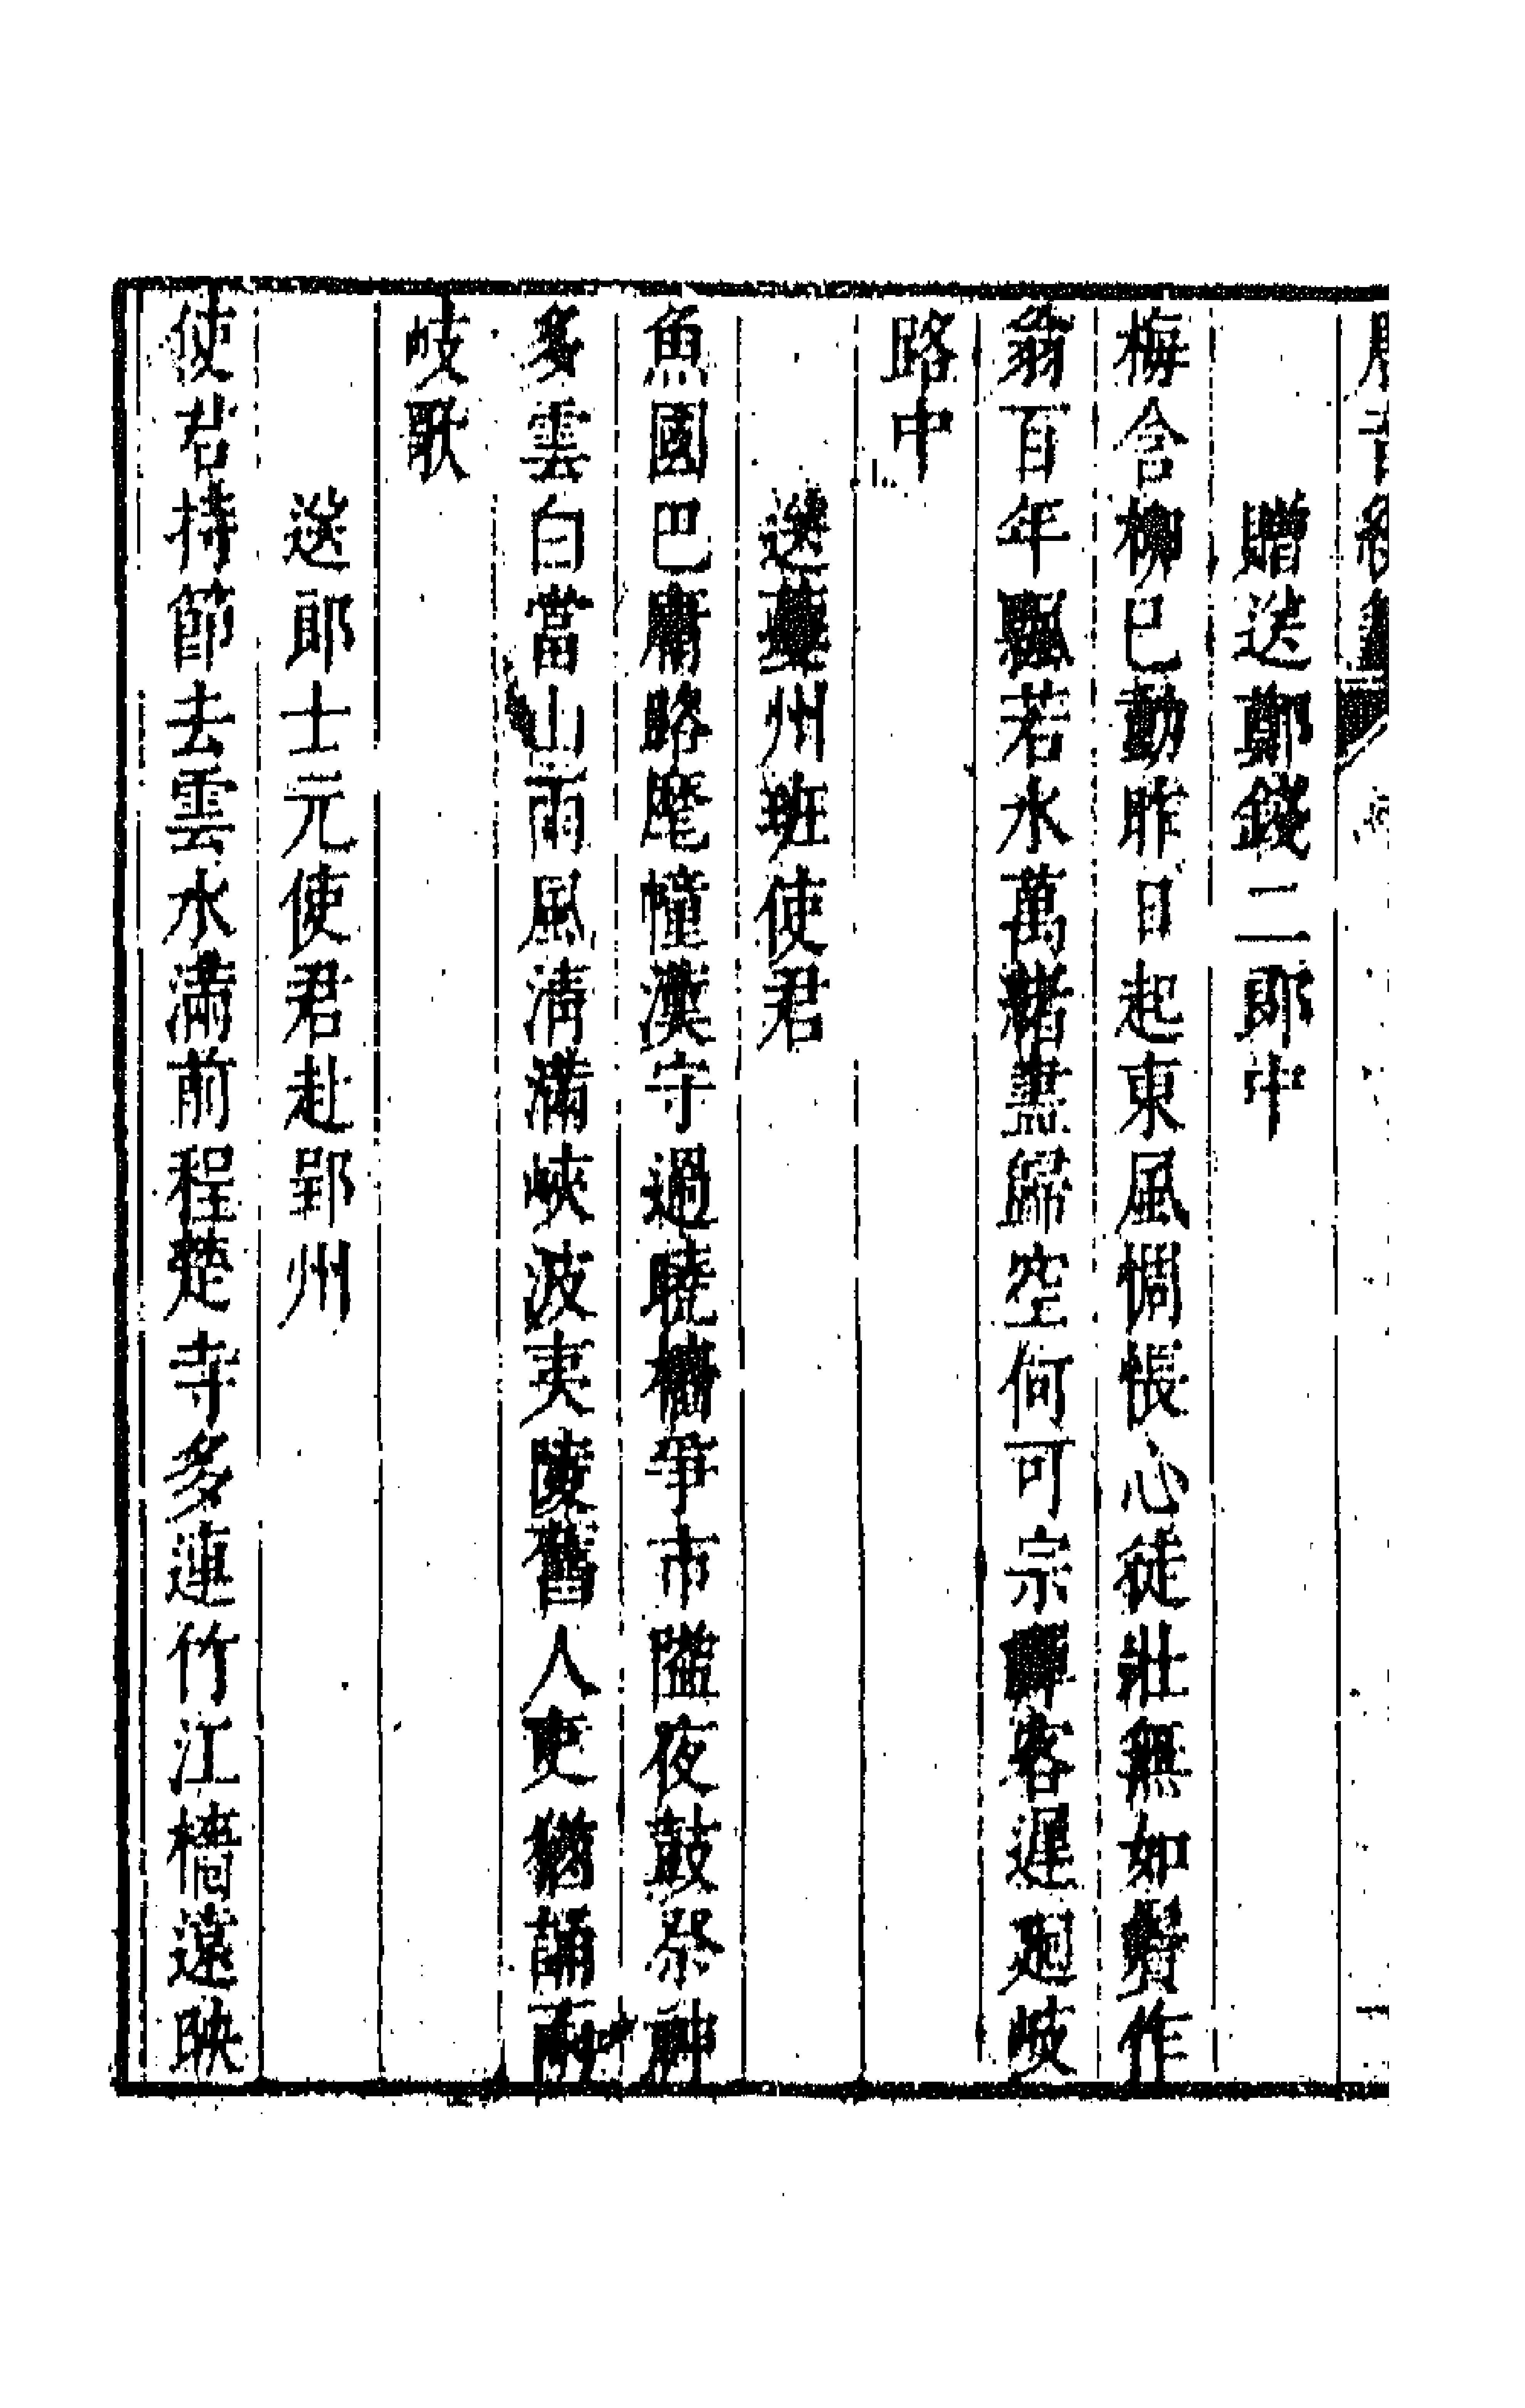 贈送鄭錢二郎中
梅含柳已動昨日起東風惆悵心徒壯無如鬢作
翁百年飄若水萬緒盡歸空何可宗禪客遲廻岐
路中
送夔州班使君
魚國巴庸路麾幢漢守過曉檣爭市隘夜鼓祭神
多雲白當山雨風清滿峽波夷陵舊人吏猶誦兩
岐歌
送郎士元使君赴郢州
使君持節去雲水滿前程楚寺多連竹江檣遠映